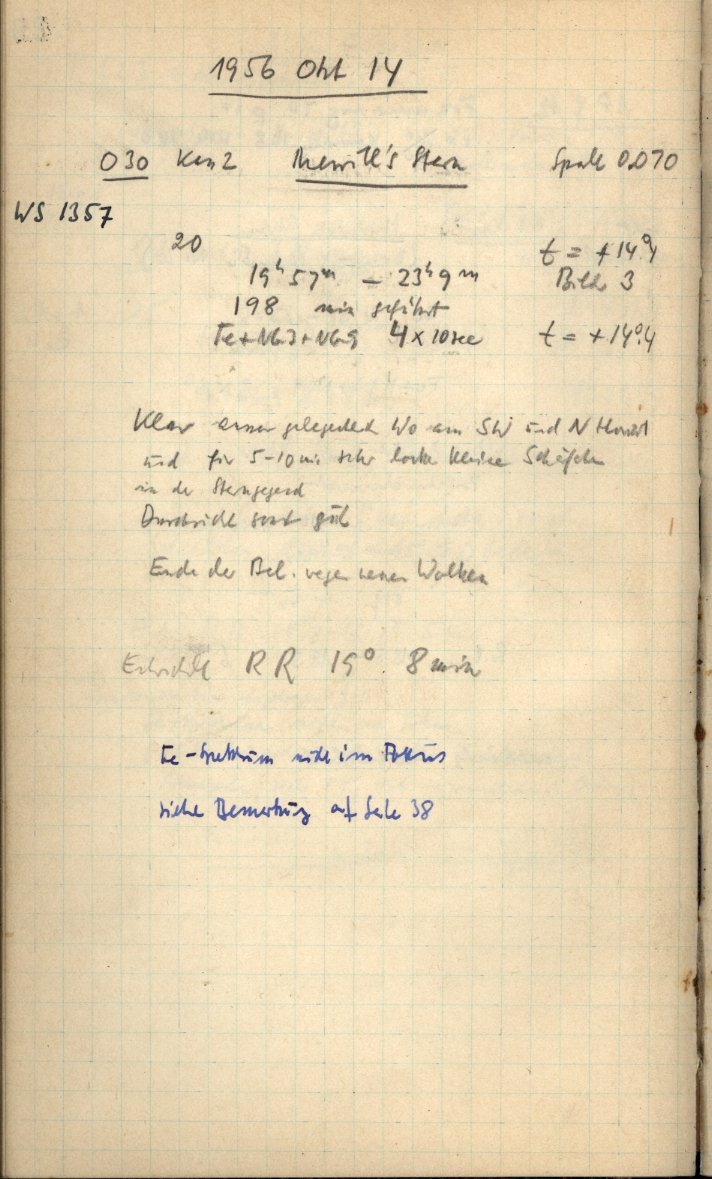 1956 Okt 14
030 Kam 2 Merrill's Stern Spalt 0.070
WS 1357
20 t = +14°.4
19ʰ 57ᵐ – 23ʰ 9ᵐ Bild 3
198 min geführt
Fe+ 4 x 10 sec t = +14°.4
Klar ausser gelegentlich Wo am SW und N Horizont
und für 5-10 min sehr kleine Schäfchen
in der Sterngegend
Durchsicht sonst gut
Ende der Bel. wegen neuer Wolken
Entwickelt RR 19° 8 min
Fe-Spektrum nicht im Fokus
siehe Bemerkung auf Seite 38